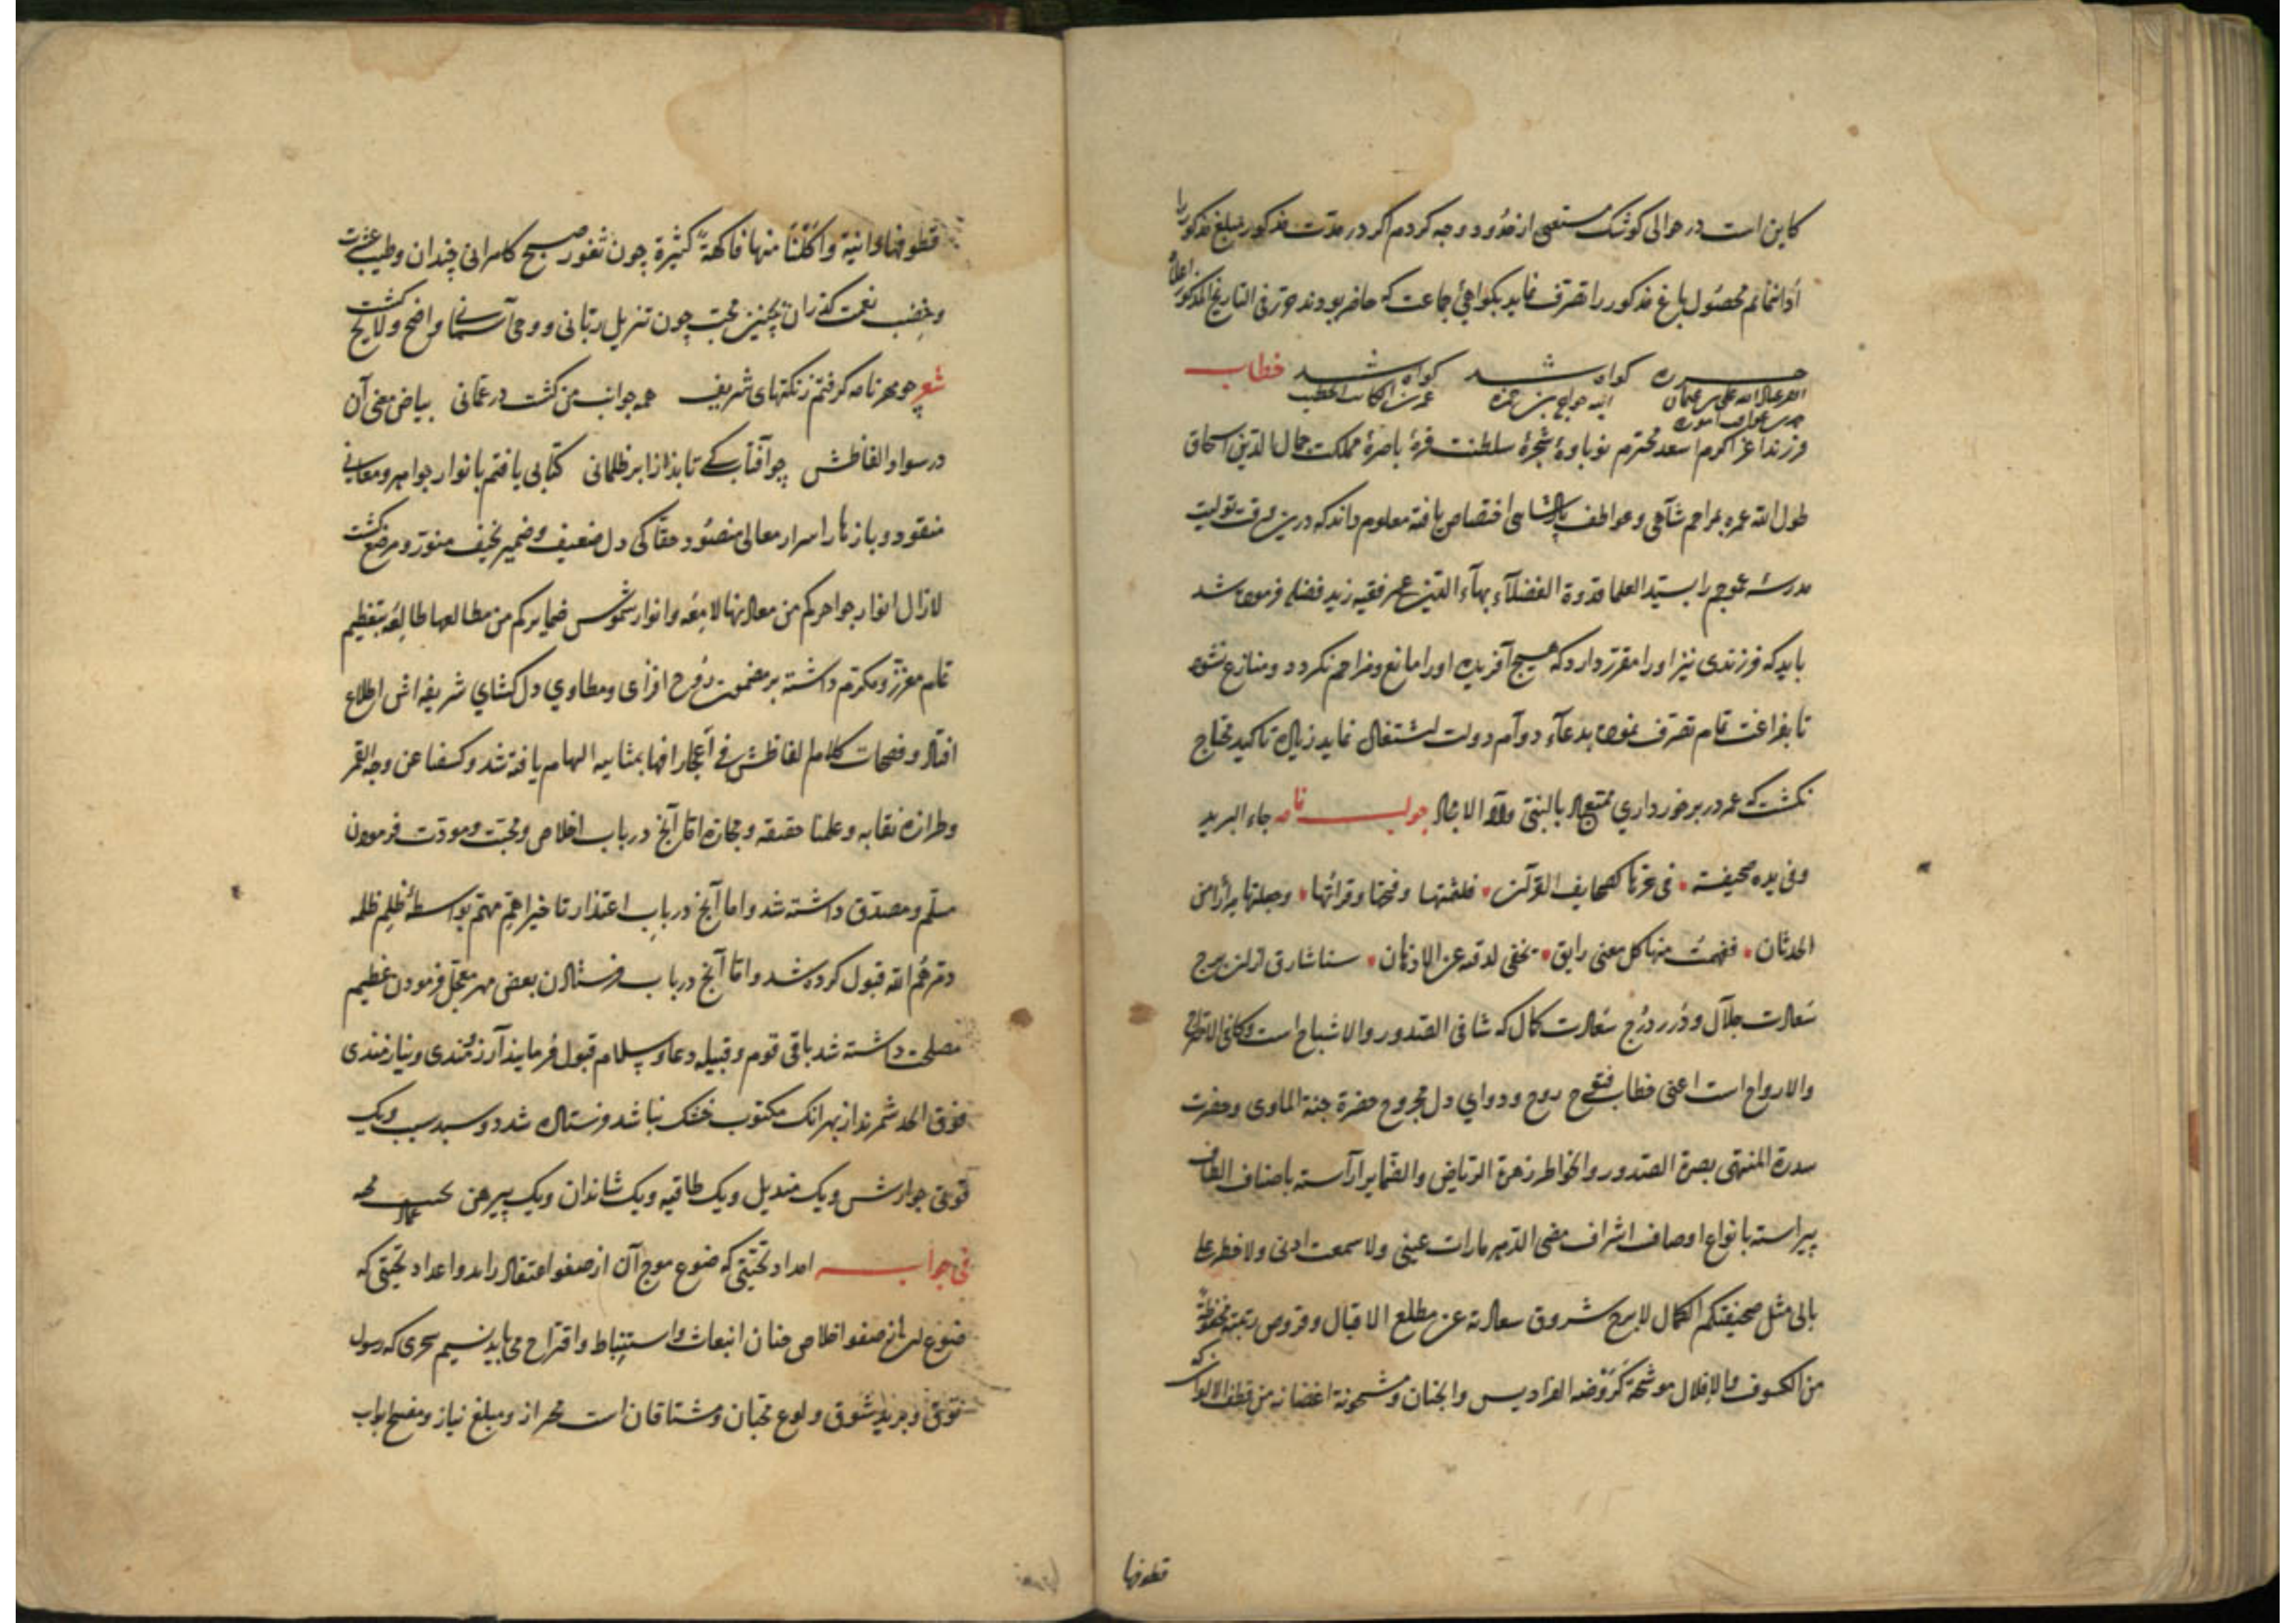 کاین است در حوالی کوشک مستغنی از حدود وجه کردم اگر در مدت مذکور مبلغ مذکور را
أدا ننمائم محصول باغ مذکور را تصرف نماید بکواهئ جماعت که حاضر بودند حرّر فی التاریخ المذکور اعلاه
کواه شد کواه شد خطاب
فرزند اعز اکرم اسعد محترم نوباوۀ شجرۀ سلطنت قرۀ باصرۀ مملکت جمال الدین اسحاق
طول الله عمره بمراحم شاهی و عواطف پادشاهی اختصاص یافته معلوم داند که درین وقت تولیت
مدرسۀ را بسید العلما قدوة الفضلآء بهآء الدین عمر فقیه زید فضله فرموده شد
باید که فرزندی نیز او را مقرر دارد که هیچ آفریده او را مانع و مزاحم نکردد و منازع نشود
تا بفراغت تمام تصرف نموده بدعآء دوآم دولت اشتغال نماید زیاده تاکید محتاج
نکشت که عمر در برخورداری ممتع باد بالنبی وآله الامجاد جواب نامه جاء البرید
وفی یده صحیفته فی عزنا کصحایف القرآن فلثمتها وفتحتها وقرأتها وجعلتها حرزا من
الحدثان ففهمت منها کل معنی رایق یخفی لدقته عن الاذهان سنا شارق از برج
سعادت جلآل و دُرر دُرج سعادت کمال که شافی الصدور والاشباح است
والارواح است اعنی خطاب فتوح روح و دوای دل مجروح حضرة جنة المأوی و حضرت
سدرة المنتهی بصرة الصدور والخواطر زهرة الریاض والضمایر آراسته باصناف الطاف
پیراسته بانواع اوصاف اشراف مضی الدهر ما رات عینی ولا سمعت اذنی ولا خطر علی
بالی مثل صحیفتکم الکمال لا برح شروق سعادته عن مطلع الاقبال و قروص محفوظة
من الکسوف والافلال موشحة کروضه الفرادیس والجنان و مشحونة اغصانه من قطف الالوان که
قطوفها
قطوفها دانیة واکلنا منها فاکهةً کثیرة چون ثغور صبح کامرانی خندان و طیب عشرت
و خصب نعمت کذران بچنین محبت چون تنزیل ربانی و وحی آسمانی واضح و لایح کشت
شعر چو مهر نامه کرفتم ز نکتهای شریف همه جوانب من کشت در عمانی بیاض معنی آن
در سواد الفاظش چو آفتاب که تابد از ابر ظلمانی کتابی یافتم بانوار جواهر و معانی
منقود و بازهار اسرار معالی منضود حقا کی دل ضعیف و ضمیر نحیف منور و مرضع کشت
لازال انوار جواهرکم من معادنها لامعه وانوار شموس ضمایرکم من مطالعها طالعه بتعظیم
تمام معزز و مکرم داشته بر مضمون روح افزای و مطاوی دل کشای شریفه اش اطلاع
افتاد و فصحات کلام الفاظش فی اعجازافها بمثابه الهام یافته شد و کشفنا عن وجه القمر
وطرازه نقابه وعلمنا حقیقه ومجازه اما آنچ در باب اخلاص و محبت و مودت فرموده
مسلم و مصدق داشته شد و اما آنچ در باب اعتذار تاخیر اهم مهم بواسطۀ ظلم ظلمه
دمرهم الله قبول کرده شد و اما آنچ در باب فرستادن بعضی مهر معجل فرمودن عظیم
مصلحت داشته شد باقی قوم و قبیله دعا و سلام قبول فرمایند آرزمندی و نیازمندی
فوق الحد شمرند از بهر انک مکتوب خشک نباشد فرستاده شد دو سبد سیب و یک
قوطی جوارش و یک مندیل و یک طاقیه و یک شانه دان و یک پیرهن
فی جوابه امداد تحیتی که ضوع موج آن از صفو اعتقاد زاید و اعداد تحیتی که
ضوع از صفو اخلاص جنان انبعاث و استنباط و اقتراح می یابد نسیم سحری که رسول
توق و برید شوق و لوع محبان و مشتاقان است محراز و مبلغ نیاز و مفتح ابواب